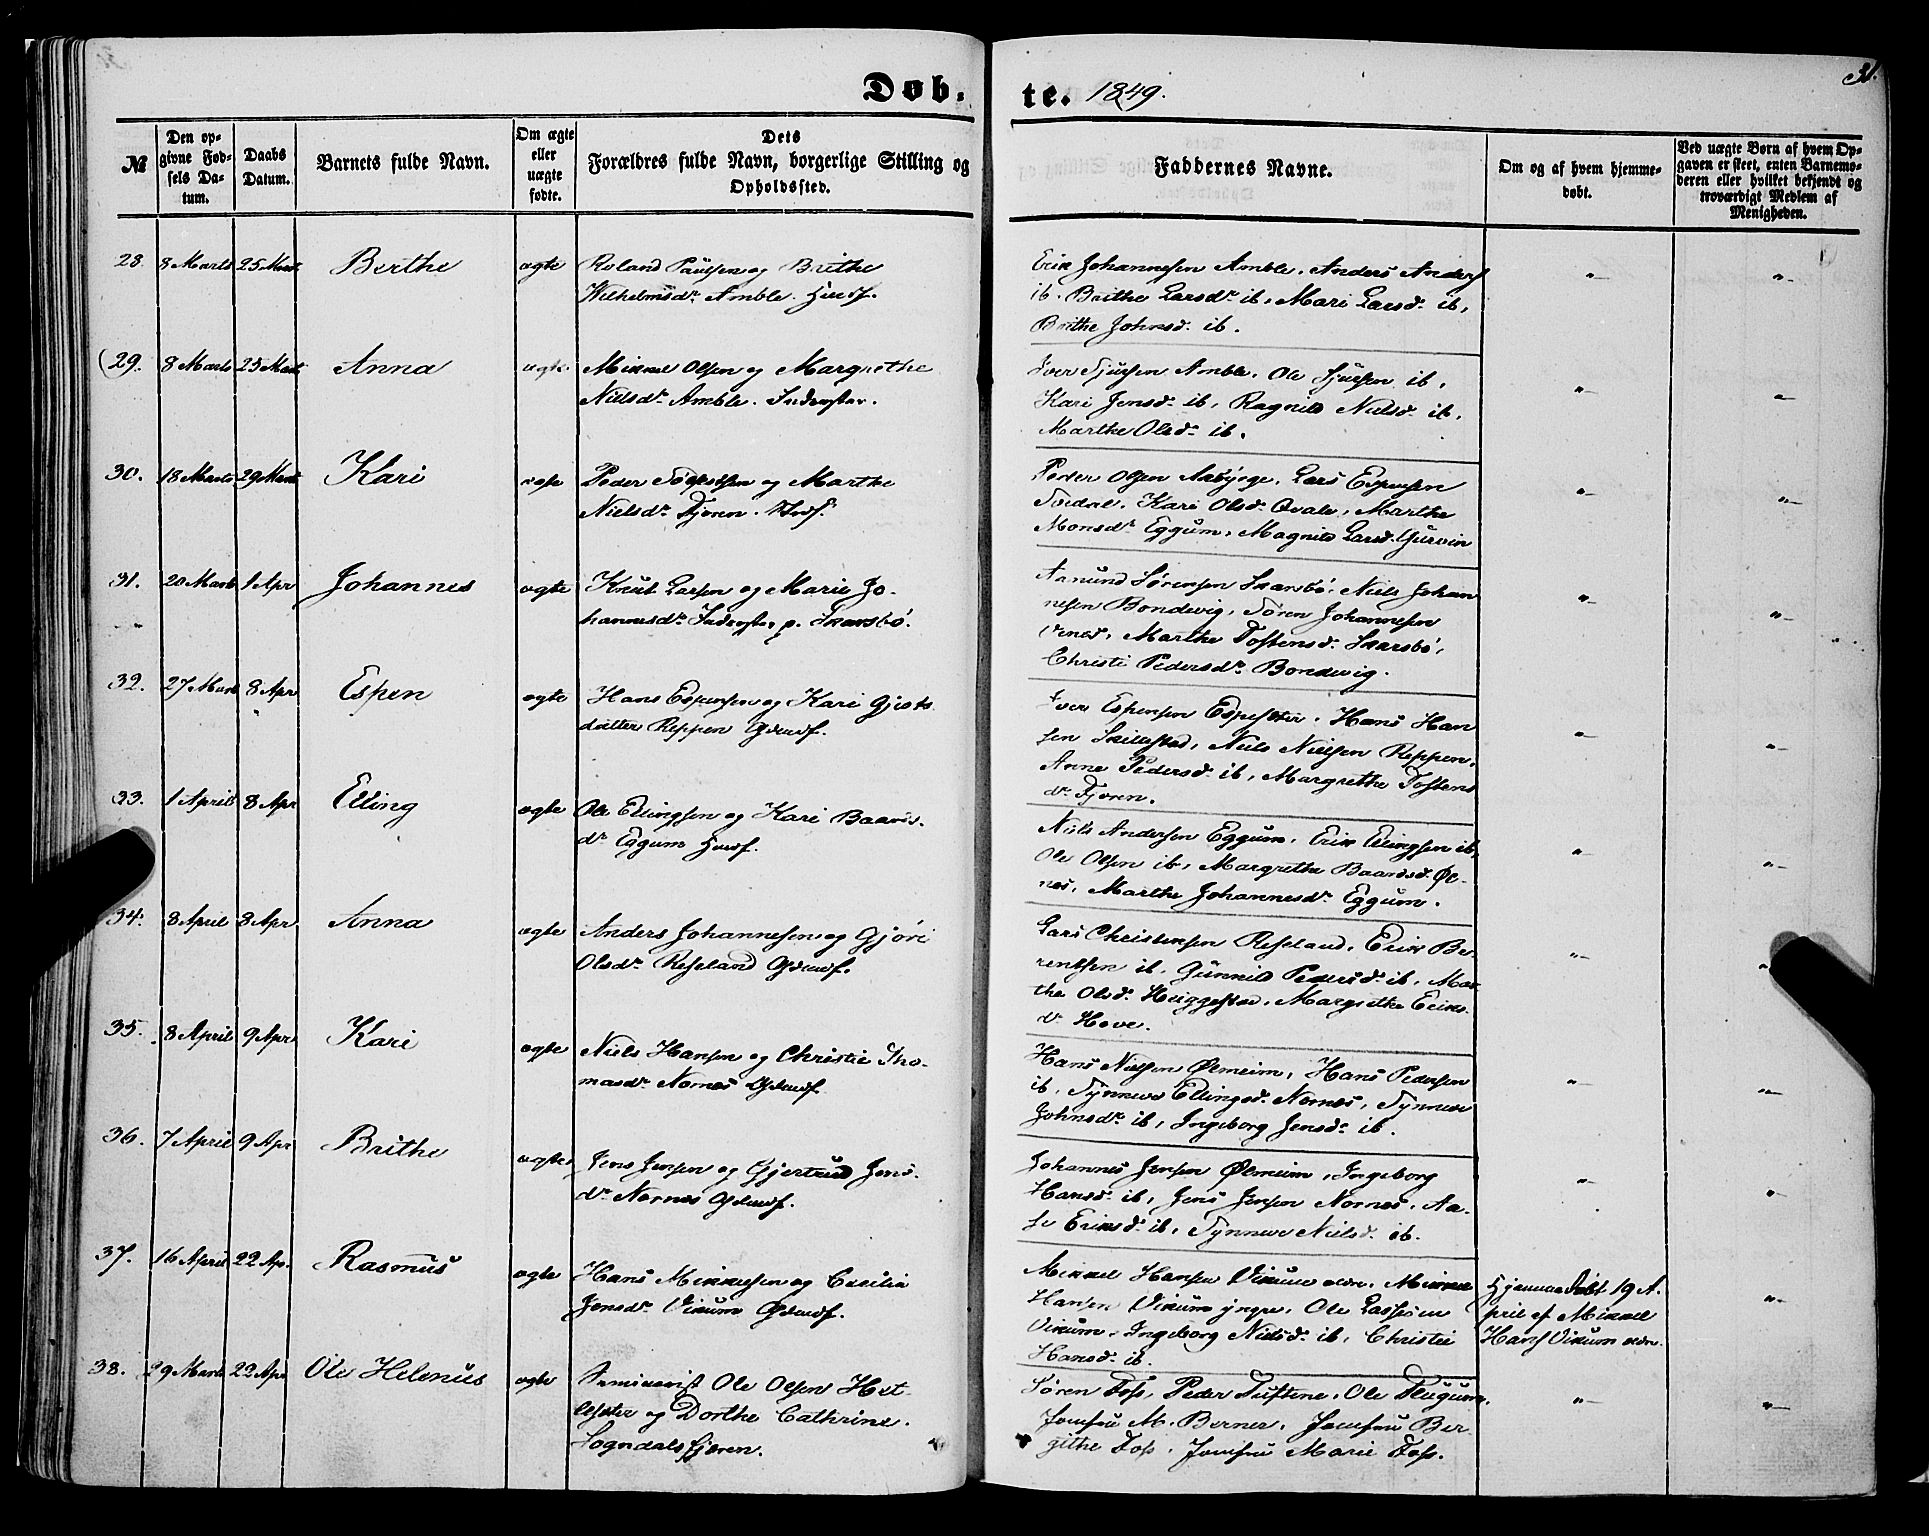 Døb-
te. 1849.
31.
№
Den op-
givne Fød-
sels Da-
tum.
Daabs
Datum.
Barnets fulde Navn.
Om ægte
eller
uægte
fødte.
Dets
Forældres fulde Navn, borgerlige Stilling og
Opholdssted.
Faddernes Navne.
Om og af hvem hjemme-
døbt.
Ved uægte Børn af hvem Op-
gaven er skeet, enten Barnemo-
deren eller hvilket bekjendt og
troværdigt Medlem af
Menigheden.
28. 8 Marts 25 Mart Berthe ægte Roland Paulsen og Brithe
Wilhelmsdr Amble. Huusf.
Erik Johannesen Amble, Anders Anders
ib. Brithe Larsdr ib, Mari Larsd. ib,
Brithe Johnsd. ib.
29. 8 Marts 25 Mart Anna ægte Mikkel Olsen og Margrethe
Nielsdr Amble. Inderster.
Iver Sjursen Amble, Ole Sjursen ib,
Kari Jensd. ib, Ragnild Nielsd. ib,
Marthe Olsd. ib.
30. 18 Marts 29 Mart Kari ægte Peder og Marthe
Nielsdr Fjæren.
Peder Olsen Aabyrge, Lars Espensen
Kari Olsd. Qvale, Marthe
Monsdr Eggum, Magnild Larsd. Gurvin
31. 20 Marts 1 Apr Johannes ægte Knut Larsen og Marie Jo-
hannesdr Inderster p. Skarsbø.
Aamund Sørensen Skarsbø, Niels Johan
nesen Bondevig, Søren Johannesen
Marthe Tostensd. Skarsbø,
Christi Pedersdr Bondevig.
32. 27 Mart 8 Apr Espen ægte Hans Espensen og Kari Gjerts
datter Reppen Gdmdf.
Iver Espensen Hans Han
sen Skillestad, Niels Nielsen Reppen,
Anne Pedersd. ib, Margrethe Tostens
dr Fjæren.
33. 1 April 8 Apr Elling ægte Ole Ellingsen og Kari Baards-
dr Eggum Huusf.
Niels Andersen Eggum, Erik Ellingsen ib,
Ole Olsen ib, Margrethe Baardsd. Øl-
nes, Marthe Johannesdr Eggum.
34. 8 April 8 Apr Anna ægte Anders Johannesen og Gjøri
Olsdr Reseland Gdmdf.
Lars Christensen Reseland, Erik Be-
rentsen ib, Gunnild Pedersd. ib, Mar
the Olsd. Margrethe Eriks-
dr Hove.
35. 8 April 9 Apr Kari ægte Niels Hansen og Christie Tho-
masdr Nornes Gdmdf.
Hans Nielsen Ølmeim, Hans Pedersen
ib, Synneve Ellingsd. Nornes, Synneve
Johnsdr ib, Ingeborg Jensd. ib.
36. 7 April 9 Apr Brithe ægte Jens Jensen og Gjertrud Jens-
dr Nornes Gdmdf.
Johannes Jensen Ølmeim, Ingeborg
Hansd. ib, Jens Jensen Nornes, Aa-
se Eriksd. ib, Synneve Nielsd. ib.
37. 16 April 22 Ap. Rasmus ægte Hans Mikkelsen og Cecilia
Jensdr Vikum Gdmdf.
Mikkel Hansen Vikum ældr. Mikkel
Hansen Vikum yngre, Ole Lassesen
Vikum, Ingeborg Nielsd. ib, Christie
Hansd. ib.
Hjemmedøbt 19 A-
pril af Mikkel
Hans Vikum ældr.
38. 29 Marts 22 Apr Ole Helenus ægte Seminarist Ole Olsen Het-
lester og Dorthe Cathrine.
Sogndalsfjæren.
Søren Foss, Peder Tuftene, Ole Flugum,
Jomfru M. Berner, Jomfru Ber-
githe Foss, Jomfru Marie Foss.